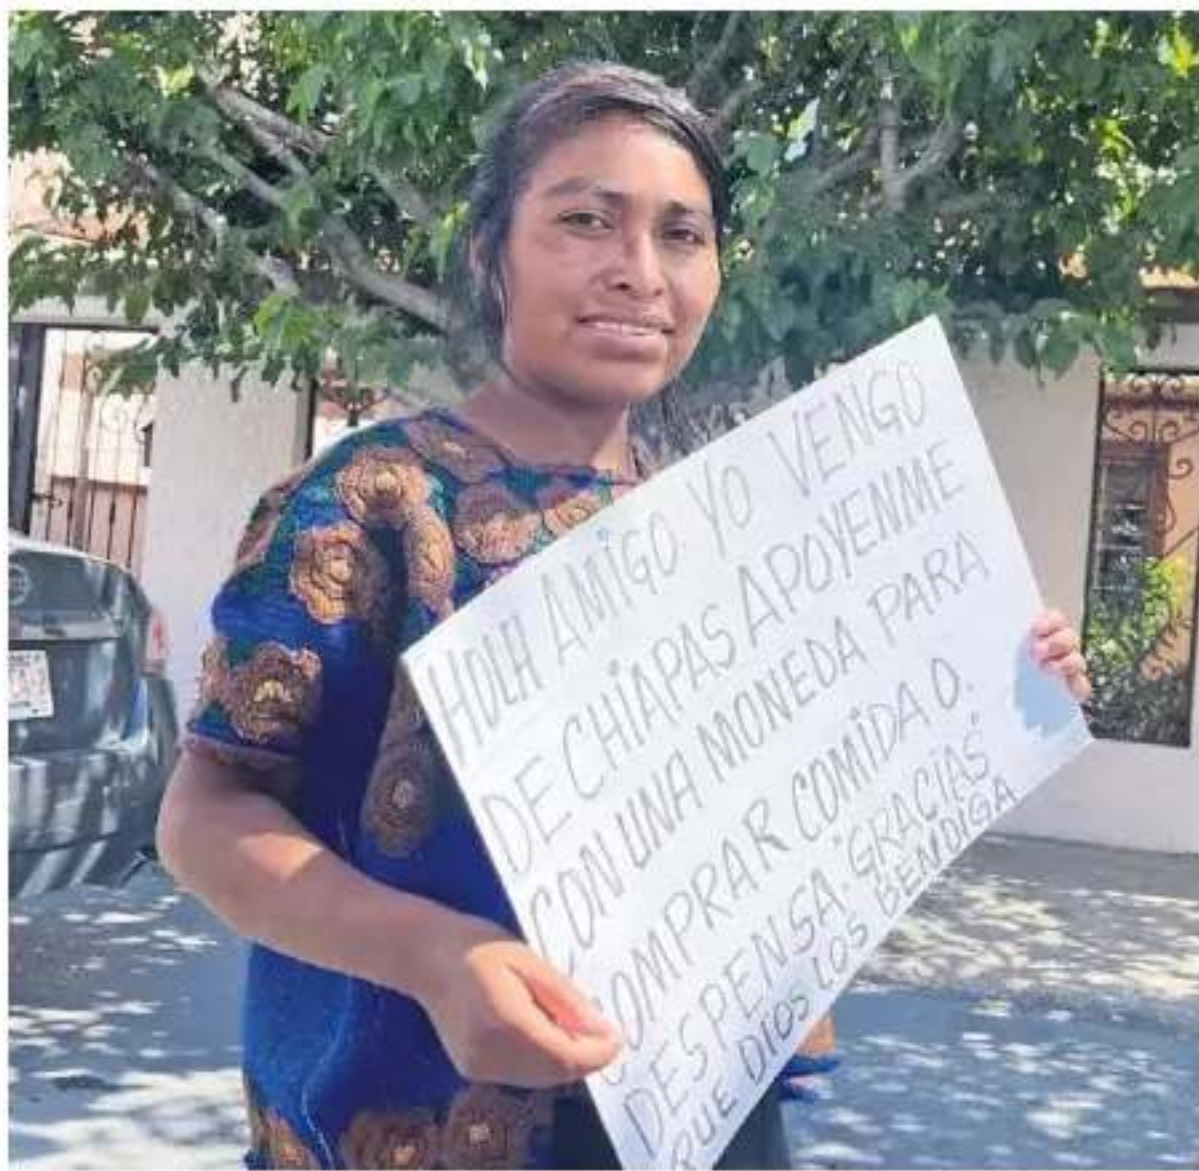 HOLA AMIGO YO VENGO
DE CHIAPAS APOYENME
CON UNA MONEDA PARA
COMPRAR COMIDA O.
DESPENSA. "GRACIAS"
QUE DIOS LOS BENDIGA